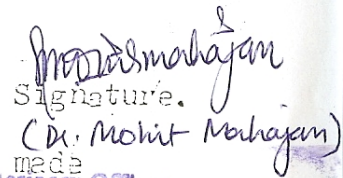 Signature.
(Dr. Mohit Mahajan)
made